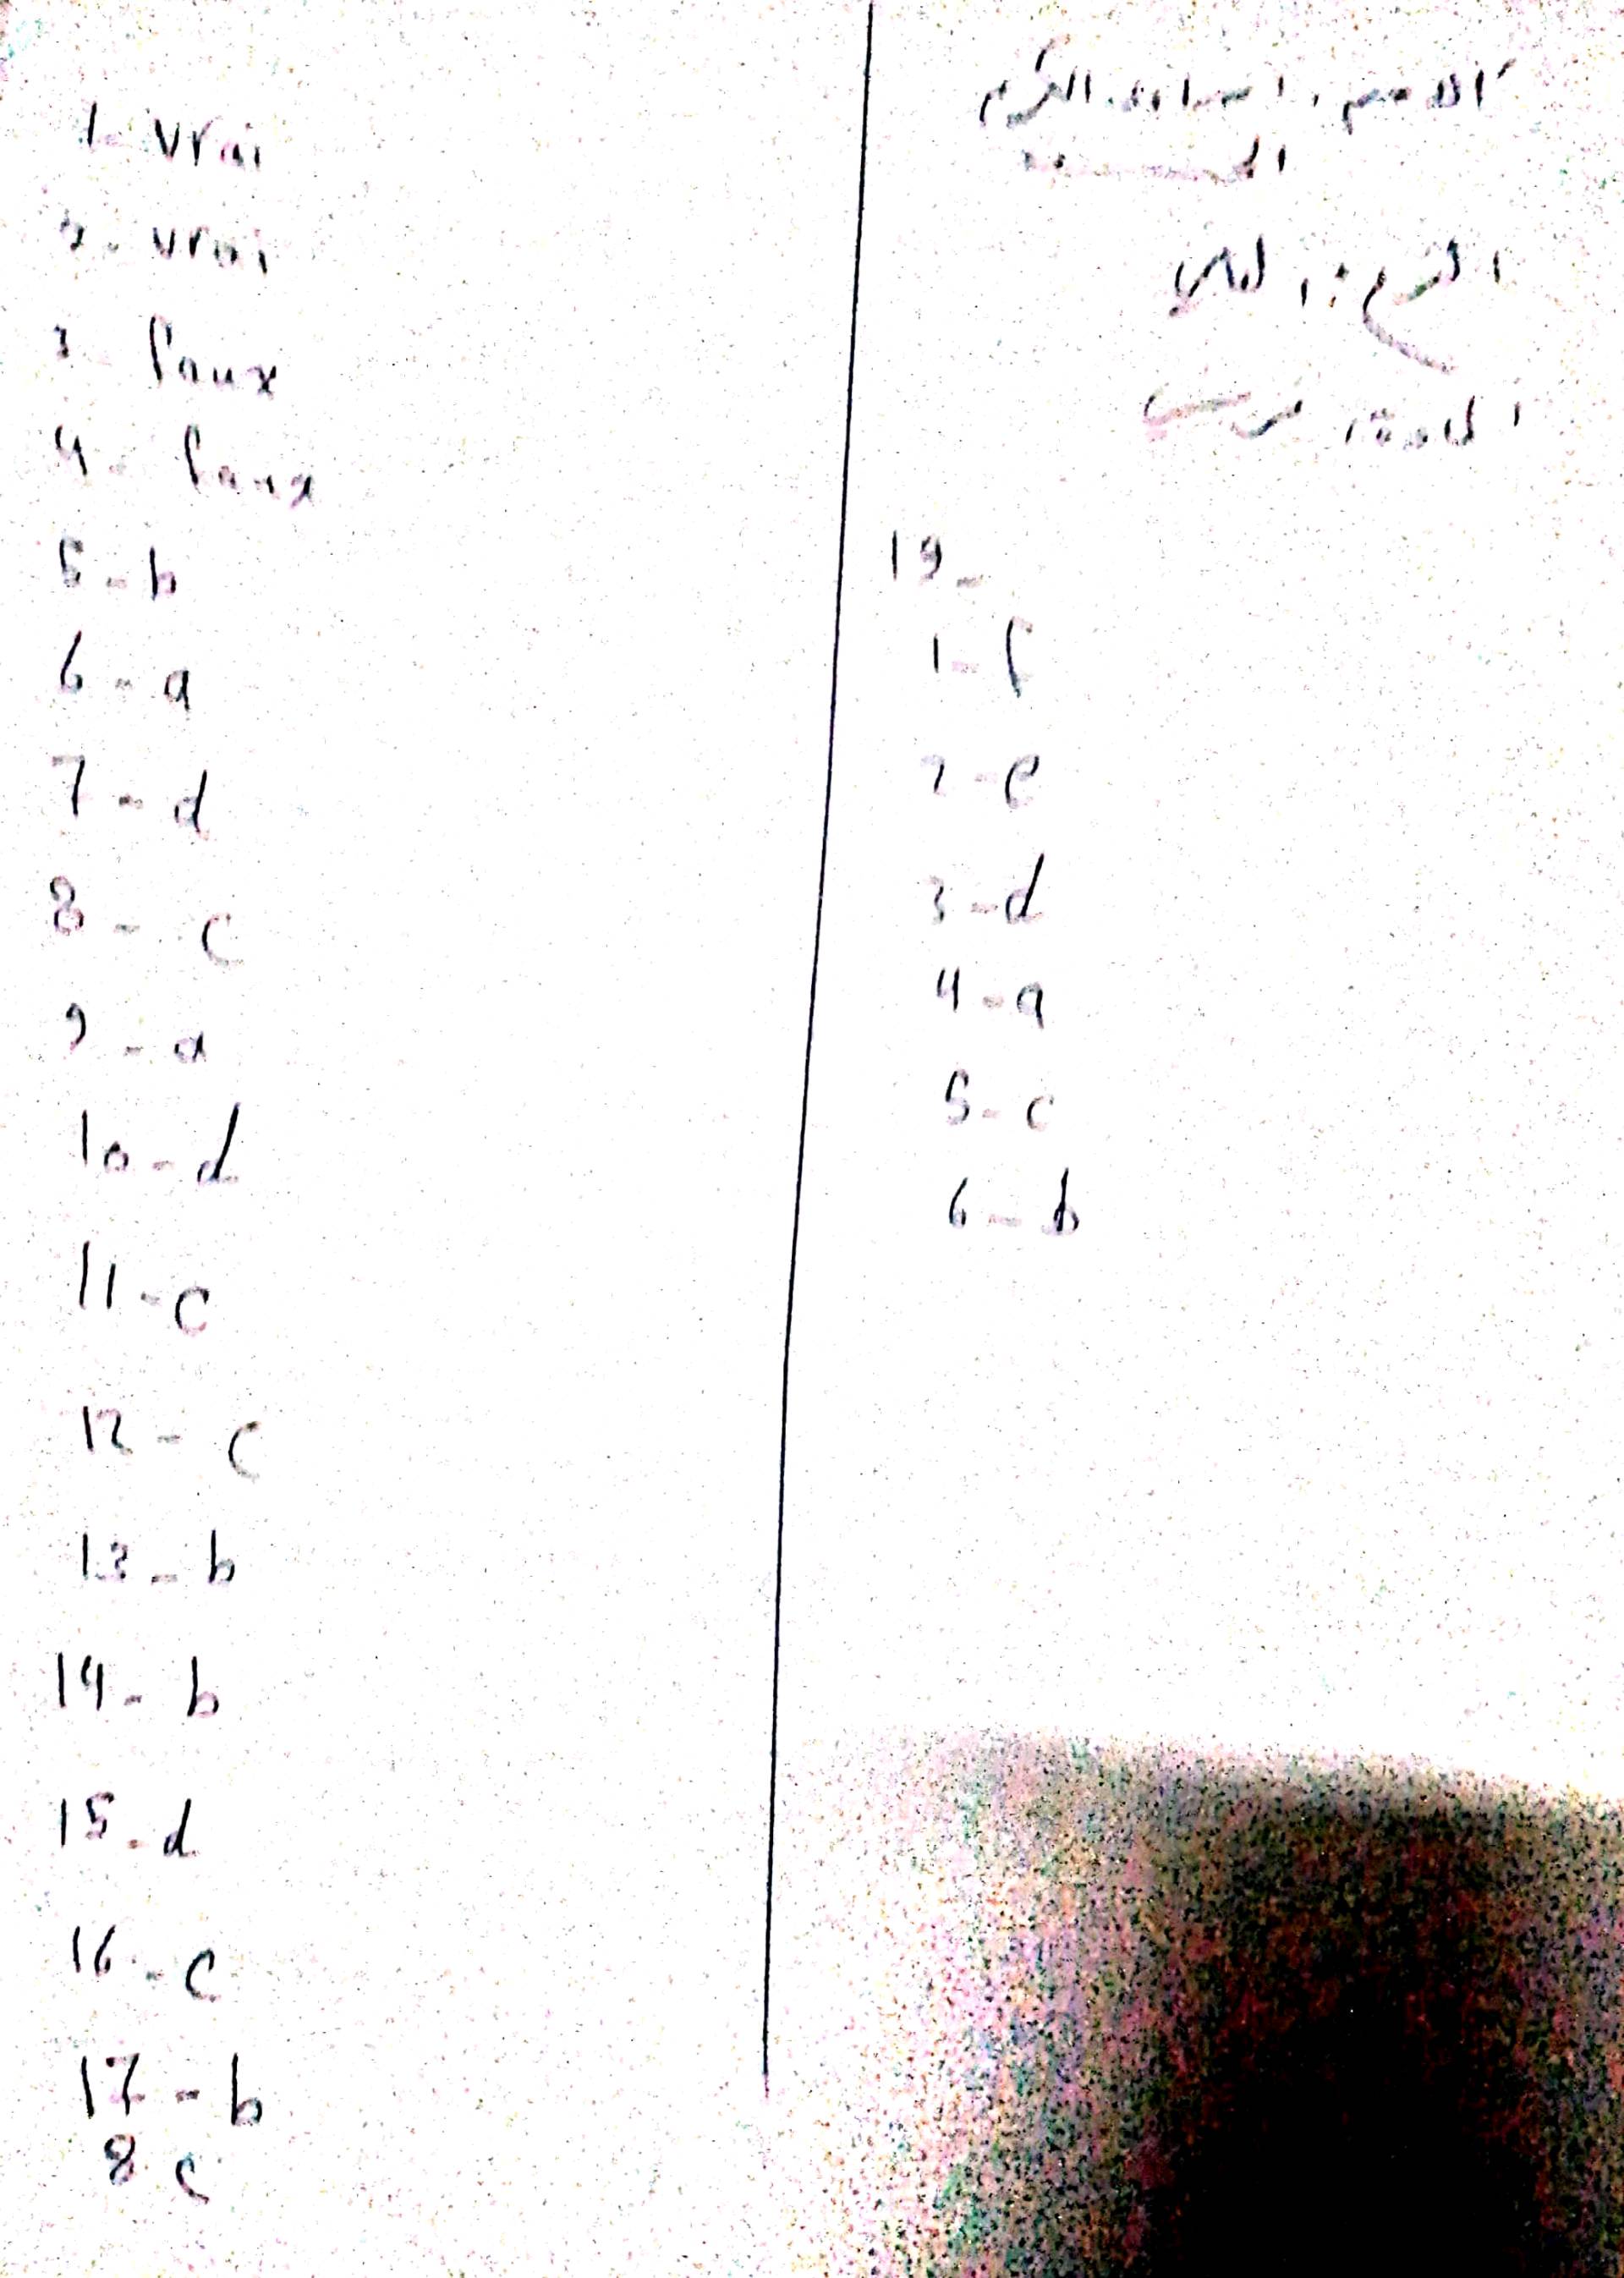 1- vrai
2- vrai
3- faux
4- faux
5- b
6- a
7- d
8- c
9- a
10- d
11- c
12- c
13- b
14- b
15- d
16- c
17- b
8 c
الاسم:
المادة:
19-
1- f
2- e
3- d
4- a
5- c
6- b